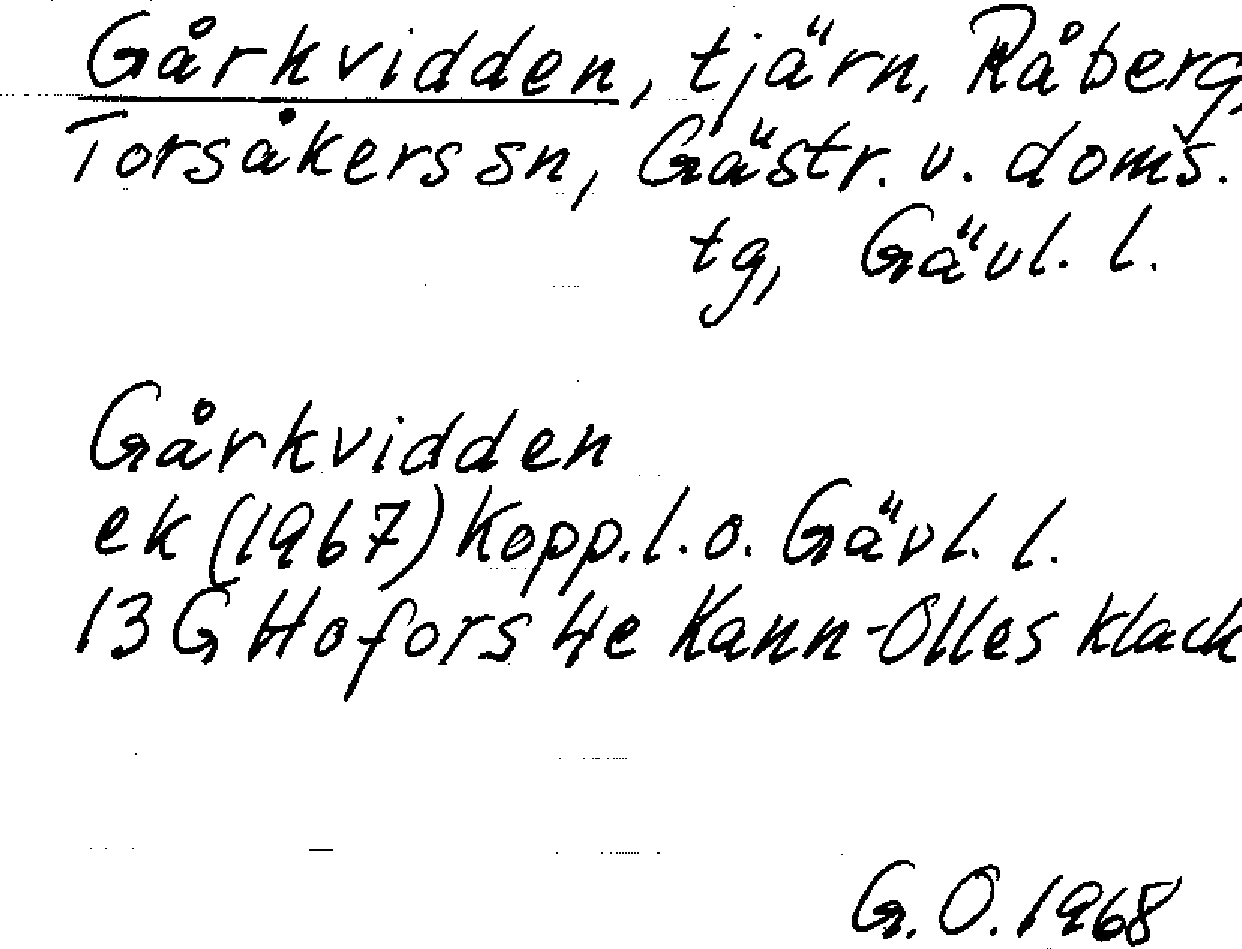 Gårkvidden, tjärn, Råberg,
Torsåkers sn, Gästr. v. doms.
tg, Gävl. l.
Gårkvidden
ek (1967) Kopp. l. o. Gävl. l.
13 G Hofors 4e Kann-Olles klack
G. O. 1968